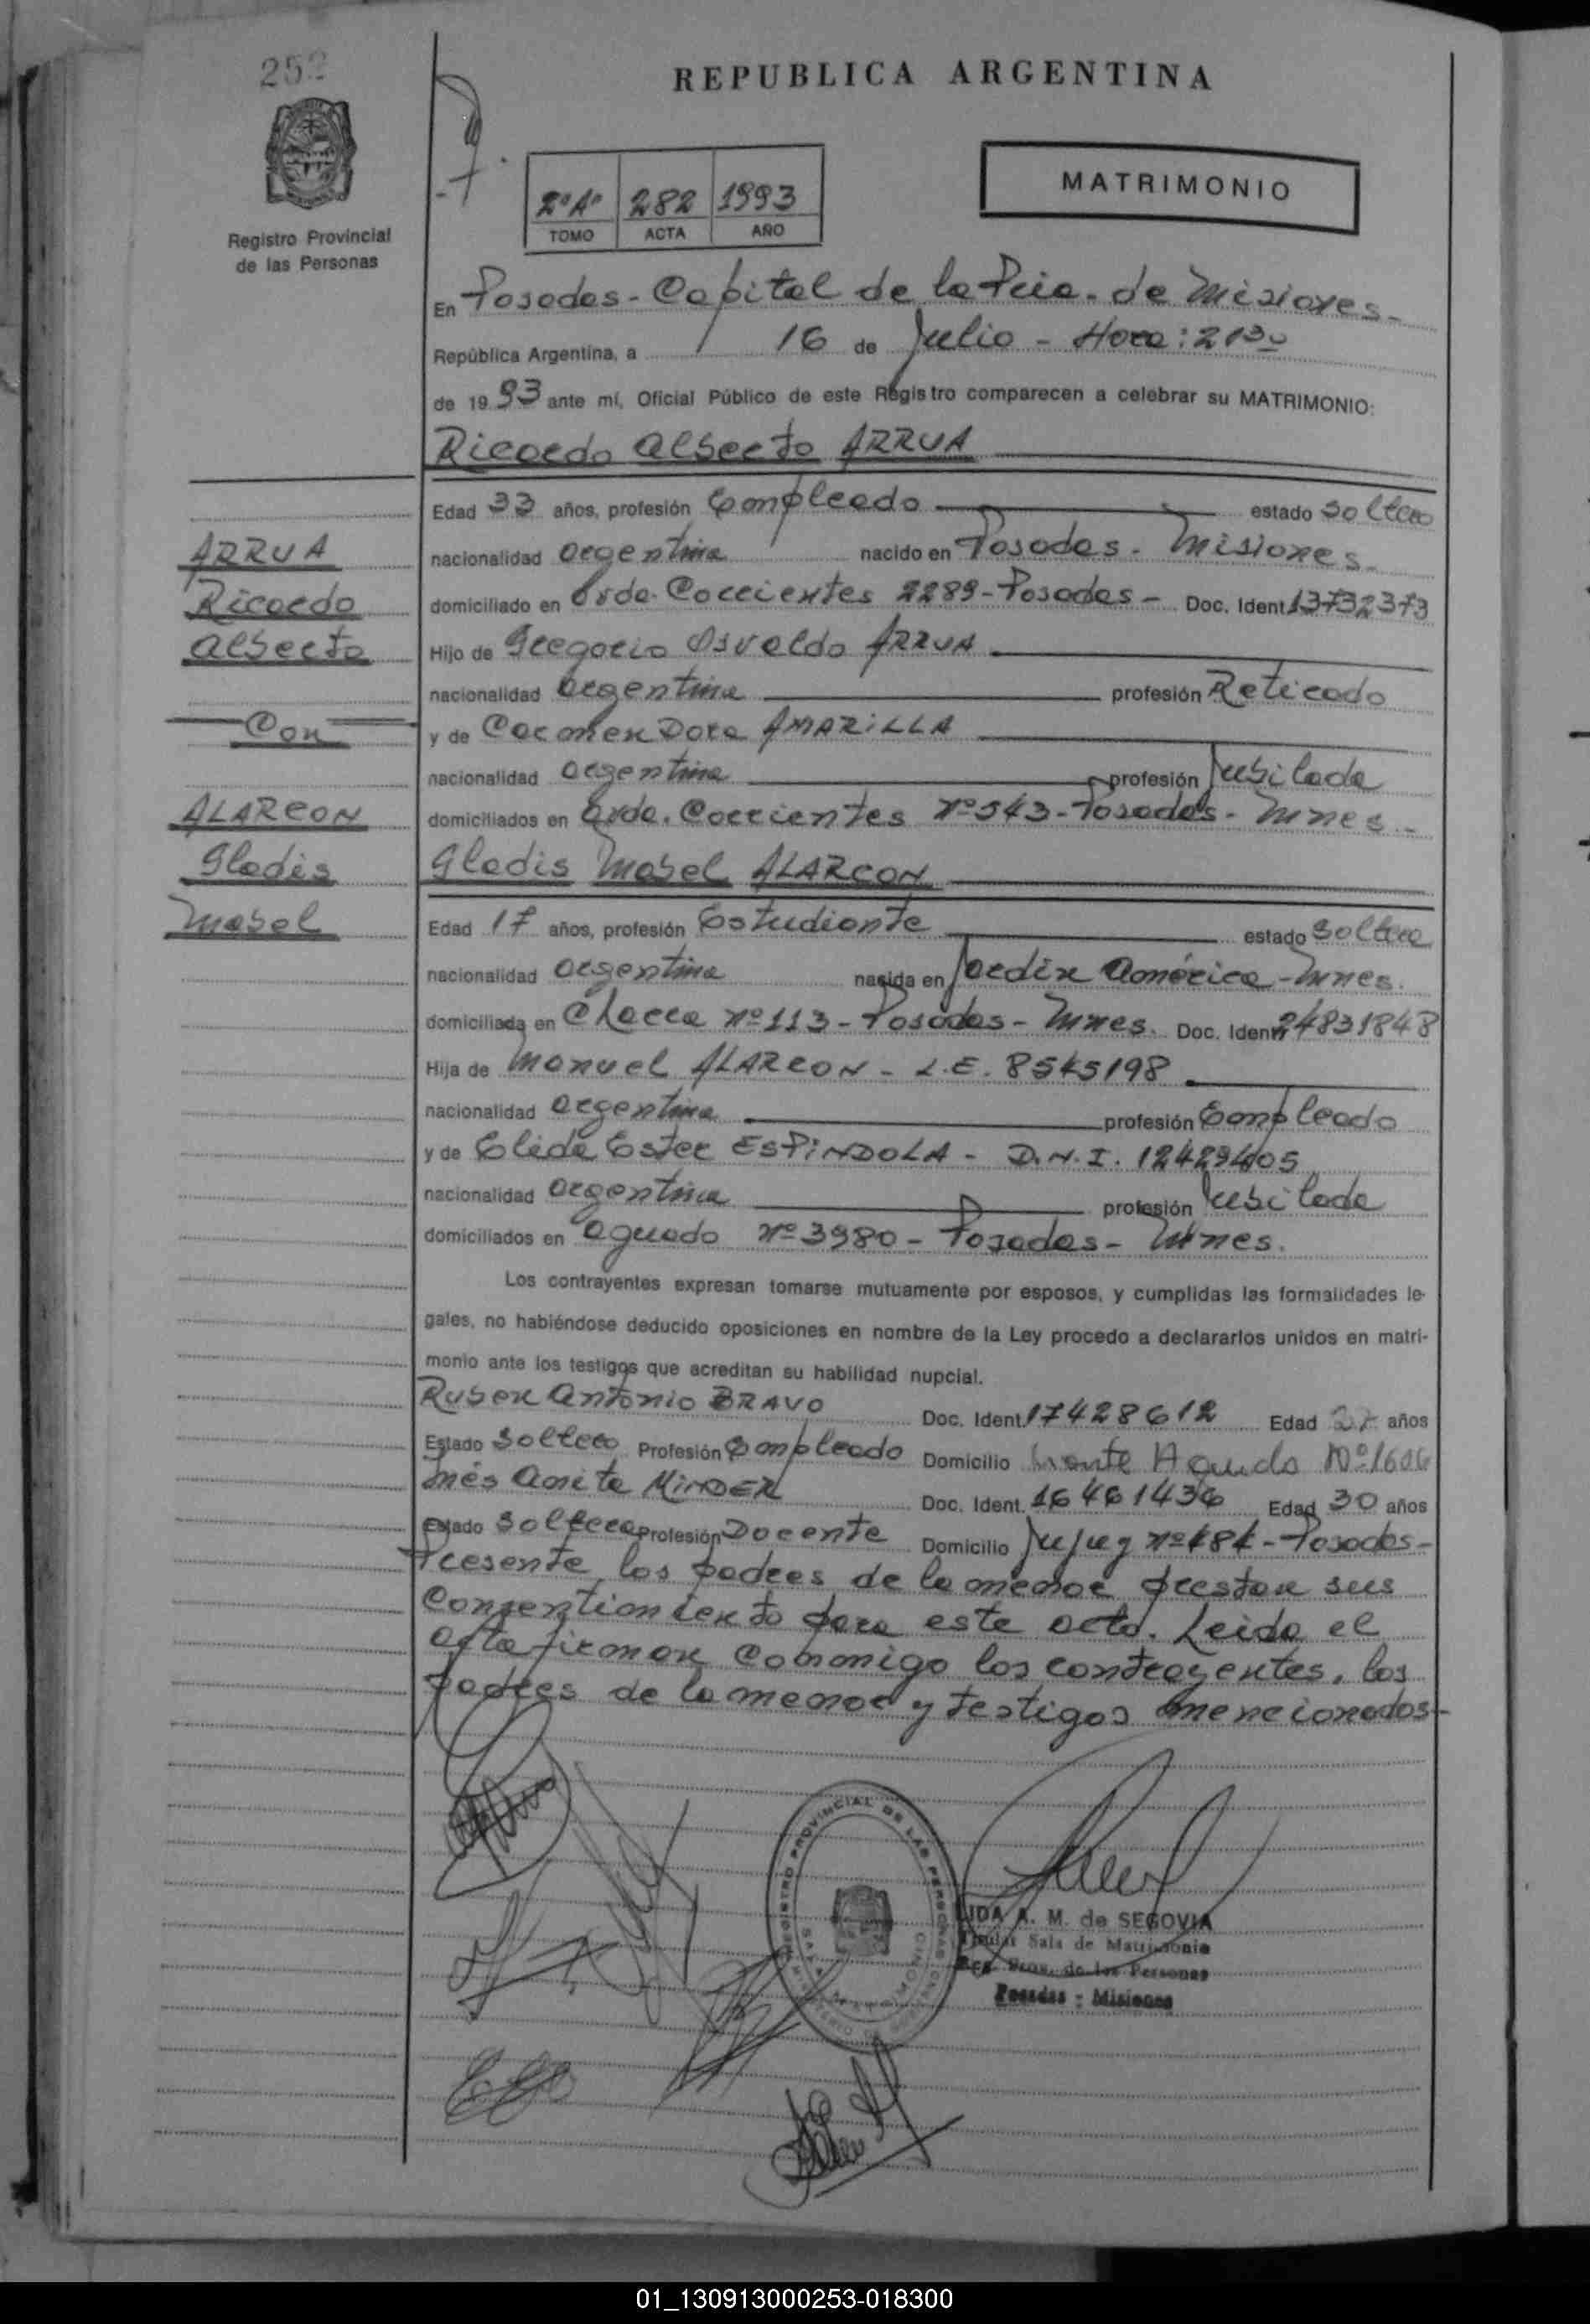 252
REPUBLICA ARGENTINA
Registro Provincial
de las Personas
2º Aº 282 1993
TOMO ACTA AÑO
MATRIMONIO
En Posadas - Capital de la Pcia. de Misiones -
República Argentina, a 16 de Julio - Hora: 21³⁰
de 1993 ante mí, Oficial Público de este Registro comparecen a celebrar su MATRIMONIO:
Ricardo Alberto ARRUA
Edad 33 años, profesión Empleado estado soltero
ARRUA
nacionalidad argentina nacido en Posadas - Misiones -
Ricardo
domiciliado en Avda. Corrientes 2289 - Posadas - Doc. Ident. 13732373
Alberto
Hijo de Gregorio Osvaldo ARRUA
nacionalidad argentina profesión Retirado
Con
y de Carmen Dora AMARILLA
nacionalidad argentina profesión Jubilada
ALARCON
domiciliados en Avda. Corrientes Nº 543 - Posadas - Mnes -
Gladis
Gladis Mabel ALARCON
Mabel
Edad 17 años, profesión Estudiante estado soltera
nacionalidad argentina nacida en Jardin América - Mnes.
domiciliada en Chacra Nº 113 - Posadas - Mnes. Doc. Ident. 24831848
Hija de Manuel ALARCON - L.E. 8545198
nacionalidad argentina profesión Empleado
y de Elida Ester ESPINDOLA - D.N.I. 12429405
nacionalidad argentina profesión Jubilada
domiciliados en Aguado Nº 3980 - Posadas - Mnes.
Los contrayentes expresan tomarse mutuamente por esposos, y cumplidas las formalidades le-
gales, no habiéndose deducido oposiciones en nombre de la Ley procedo a declararlos unidos en matri-
monio ante los testigos que acreditan su habilidad nupcial.
Ruben Antonio BRAVO Doc. Ident. 17428612 Edad 27 años
Estado soltero Profesión Empleado Domicilio Monte Agudo Nº 1606
Inés Anita MINDER Doc. Ident. 16461436 Edad 30 años
Estado soltera Profesión Docente Domicilio Jujuy Nº 484 - Posadas -
Presente los padres de la menor prestan sus
consentimiento para este acto. Leida el
acta firman conmigo los contrayentes, los
padres de la menor y testigos mencionados -
REGISTRO PROVINCIAL DE LAS PERSONAS
A. M. de SEGOVIA
Titular Sala de Matrimonio
Reg. Prov. de las Personas
Posadas - Misiones
01_130913000253-018300